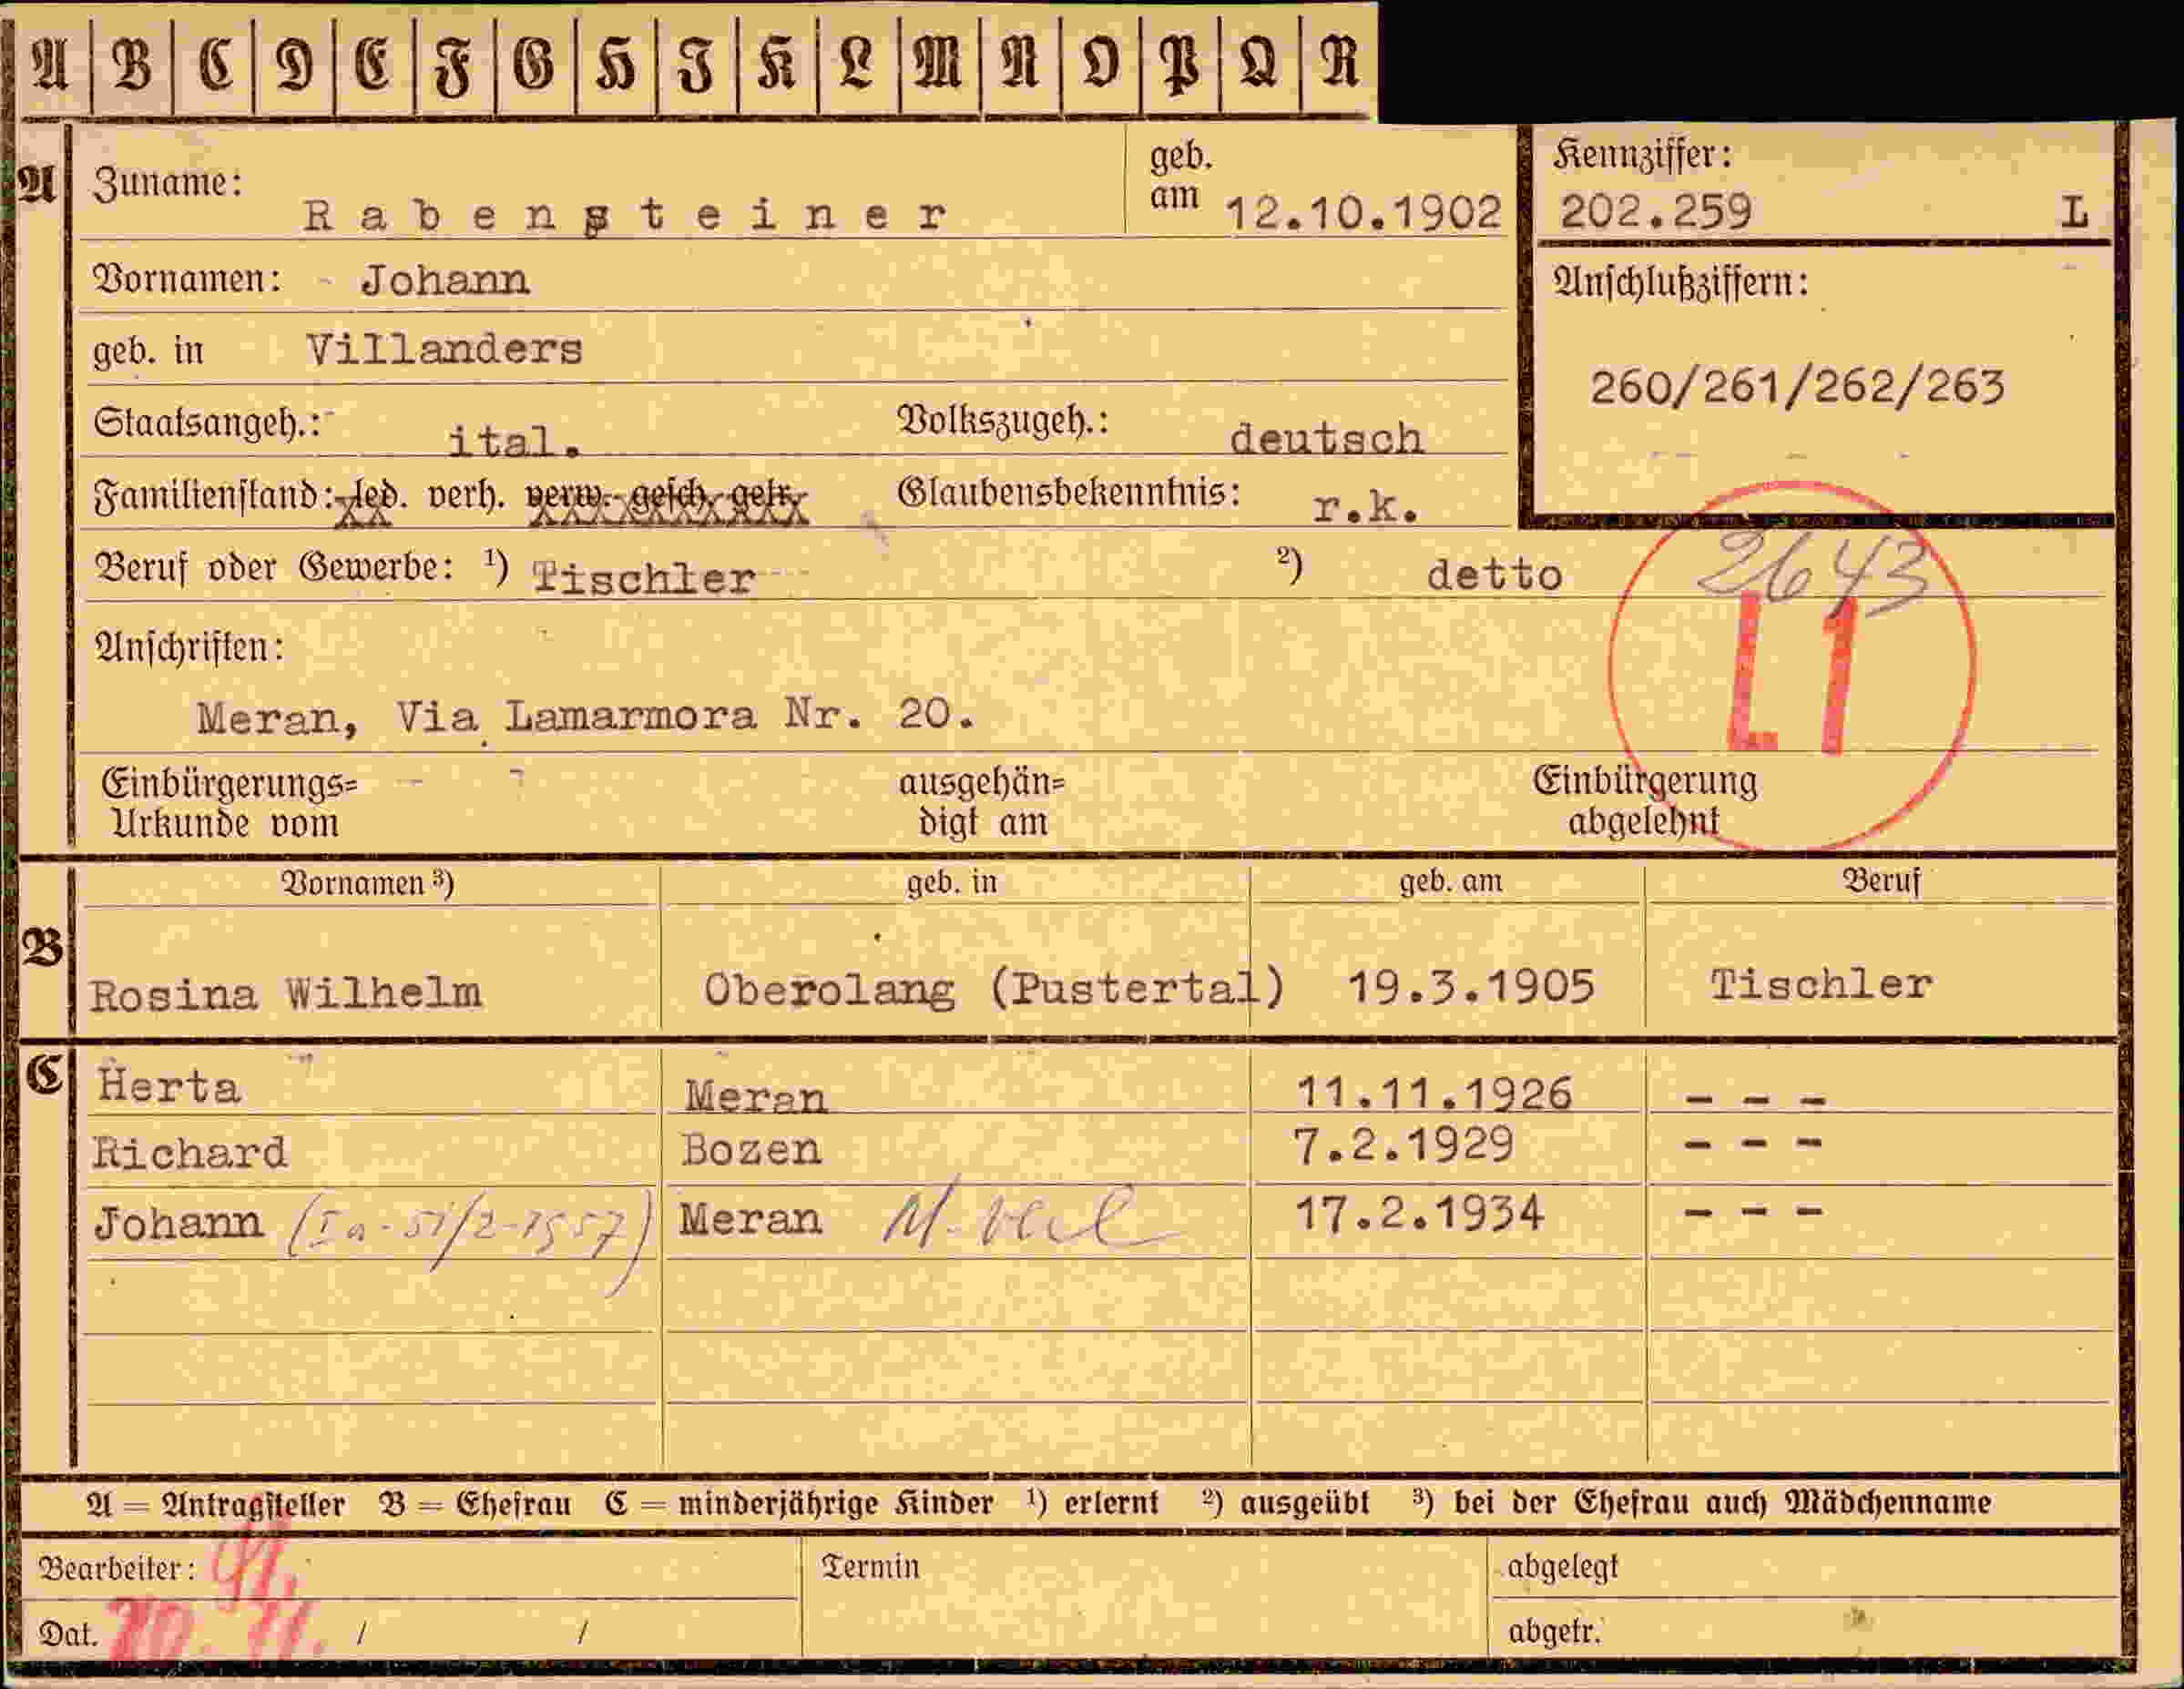 A B C D E F G H I K L M N O P Q R
A Zuname: Rabensteiner geb. am 12.10.1902
Kennziffer: 202.259 L
Vornamen: Johann
Anschlußziffern:
geb. in Villanders
260/261/262/263
Staatsangeh.: ital. Volkszugeh.: deutsch
Familienstand: led. verh. verw. gesch. getr. Glaubensbekenntnis: r.k.
Beruf oder Gewerbe: 1) Tischler 2) detto
2643
L1
Anschriften:
Meran, Via Lamarmora Nr. 20.
Einbürgerungs=
Urkunde vom
ausgehän=
digt am
Einbürgerung
abgelehnt
Vornamen 3) geb. in geb. am Beruf
B Rosina Wilhelm Oberolang (Pustertal) 19.3.1905 Tischler
C Herta Meran 11.11.1926 - - -
Richard Bozen 7.2.1929 - - -
Johann Meran 17.2.1934 - - -
A = Antragsteller B = Ehefrau C = minderjährige Kinder 1) erlernt 2) ausgeübt 3) bei der Ehefrau auch Mädchenname
Bearbeiter: Termin abgelegt
Dat. / / abgetr.